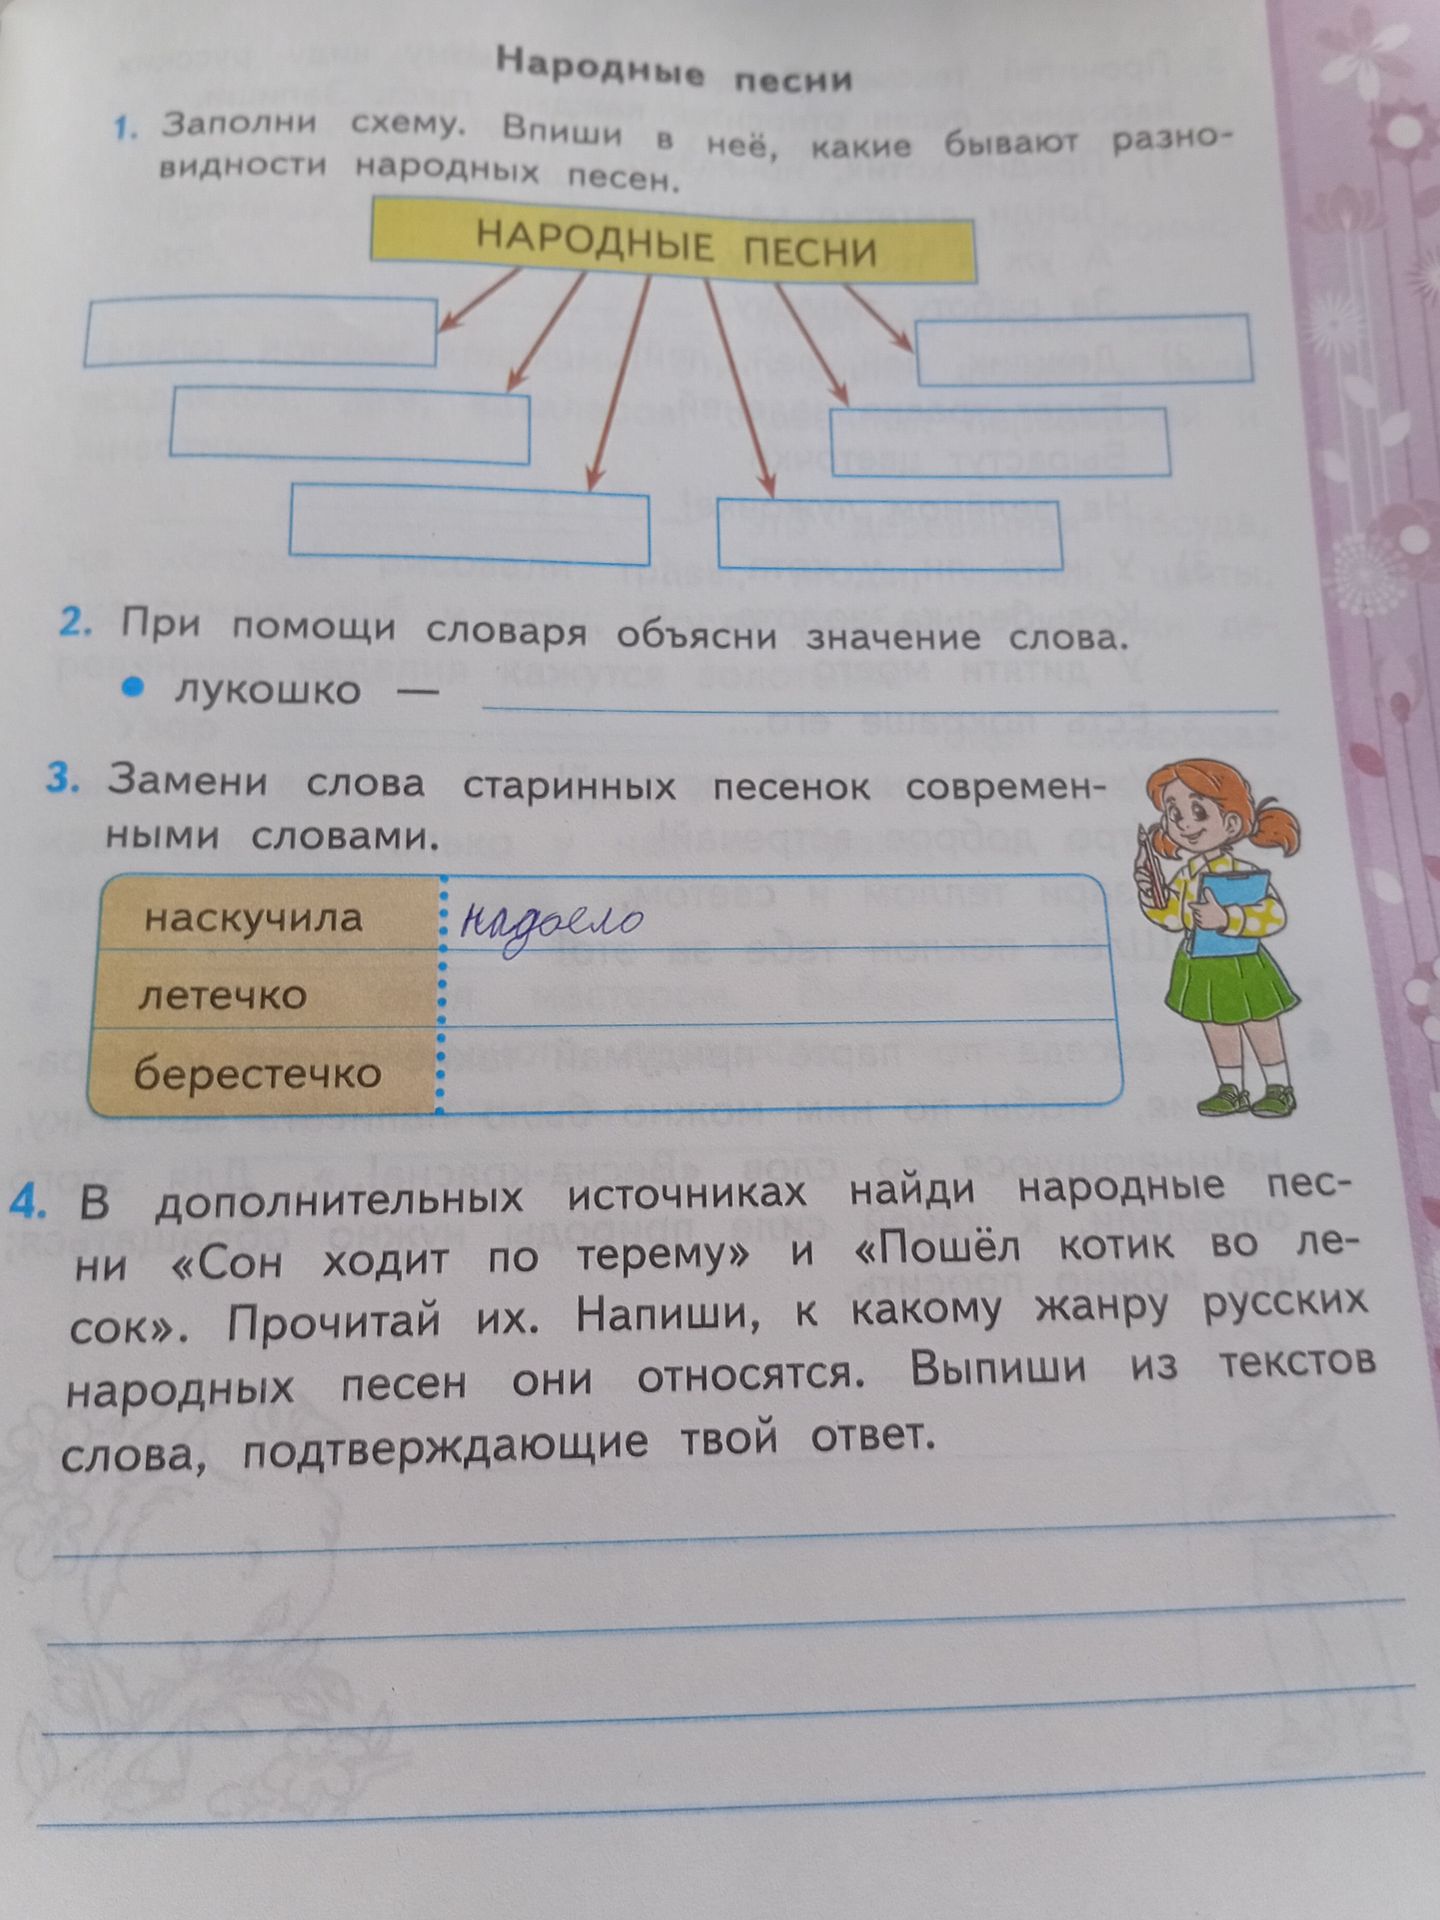 Народные песни
1. Заполни схему. Впиши в неё, какие бывают разно-
видности народных песен.
НАРОДНЫЕ ПЕСНИ
2. При помощи словаря объясни значение слова.
• лукошко —
3. Замени слова старинных песенок современ-
ными словами.
наскучила надоело
летечко
берестечко
4. В дополнительных источниках найди народные пес-
ни «Сон ходит по терему» и «Пошёл котик во ле-
сок». Прочитай их. Напиши, к какому жанру русских
народных песен они относятся. Выпиши из текстов
слова, подтверждающие твой ответ.